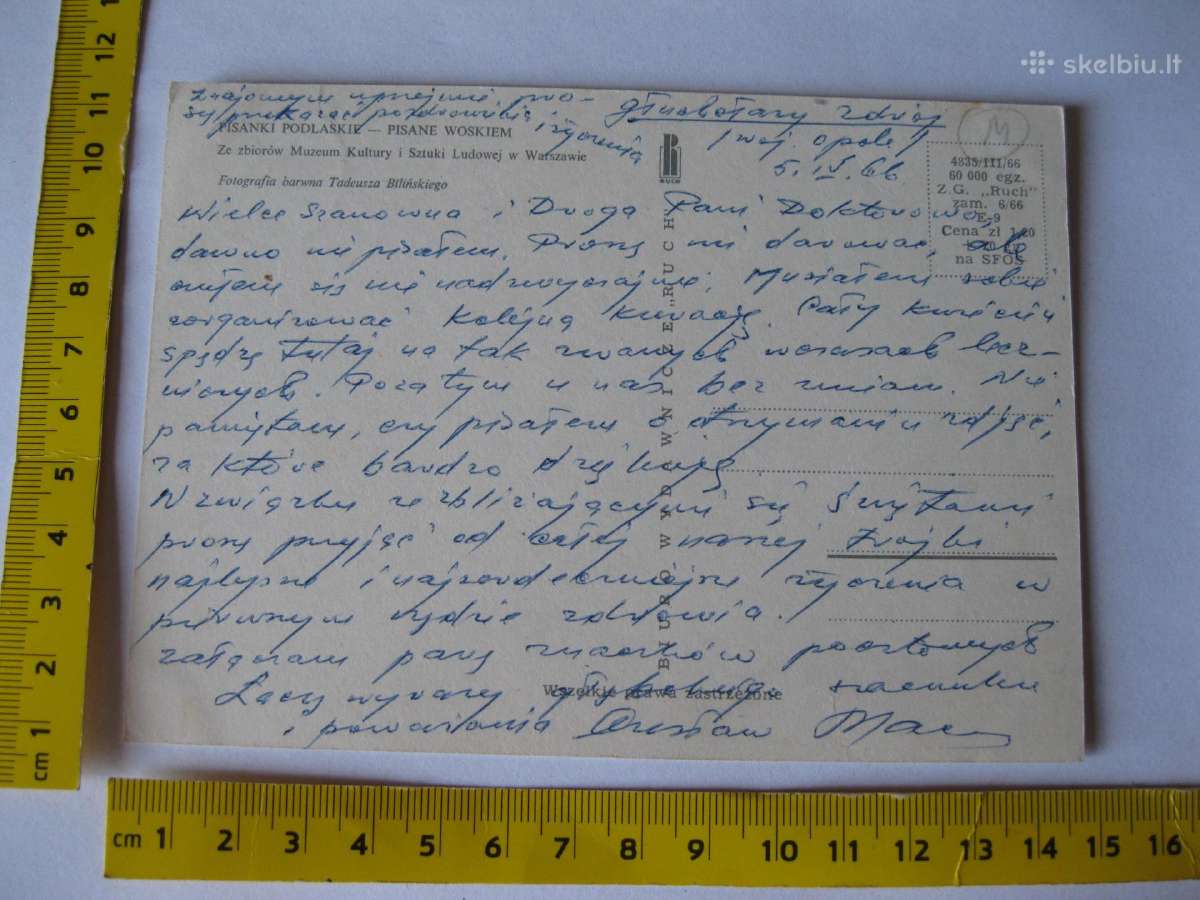 skelbiu.lt
Znajomym uprzejmie pro-
szę przekazać pozdrowienia
i życzenia
Głuchołazy Zdrój
/woj. opole/
5.IV.66.
PISANKI PODLASKIE — PISANE WOSKIEM
Ze zbiorów Muzeum Kultury i Sztuki Ludowej w Warszawie
Fotografia barwna Tadeusza Bilińskiego
RUCH
4835/III/66
60 000 egz.
Z.G. „Ruch"
zam. 6/66
E-9
Cena zł 1,20
na SFOS
Wielce Szanowna i Droga Pani Doktorowo,
dawno nie pisałem. Proszę mi darować, ale
się nie nadzwyczajnie. Musiałem sobie
zorganizować kolejną kurację. Cały kwiecień
spędzę tutaj na tak zwanych wczasach lecz-
niczych. Poza tym u nas bez zmian. Nie
pamiętam, czy pisałem o otrzymaniu zdjęć,
za które bardzo dziękuję.
W związku ze zbliżającymi się Świętami
proszę przyjąć od całej naszej trójki
najlepsze i najserdeczniejsze życzenia w
pierwszym rzędzie zdrowia.
Załączam parę znaczków pocztowych
Łączę wyrazy szacunku
i poważania Czesław
BIURO WYDAWNICZE „RUCH"
Wszelkie prawa zastrzeżone
M
cm 1 2 3 4 5 6 7 8 9 10 11 12
cm 1 2 3 4 5 6 7 8 9 10 11 12 13 14 15 16